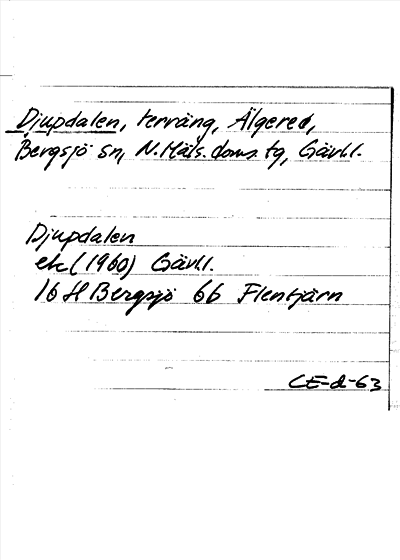 Djupdalen, terräng, Älgered,
Bergsjö sn, N. Häls. doms. tg, Gävl.l.
Djupdalen
ek (1960) Gävl.l.
16 H Bergsjö 6b Flentjärn
CE-d-63